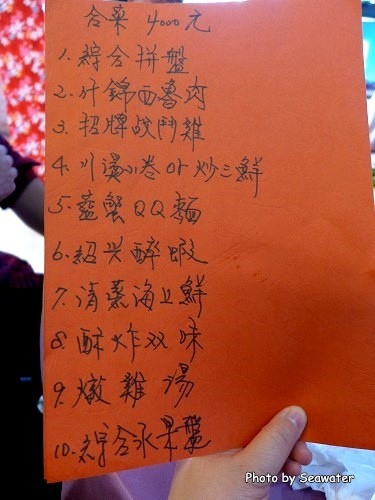 合菜 4000元
1. 綜合拼盤
2. 什錦西魯肉
3. 招牌战鬥雞
4. 川燙小卷 or 炒三鮮
5. 蟹QQ麵
6. 紹兴醉蝦
7. 清蒸海上鮮
8. 酥炸双味
9. 燉雞湯
10. 綜合水果盤
Photo by Seawater